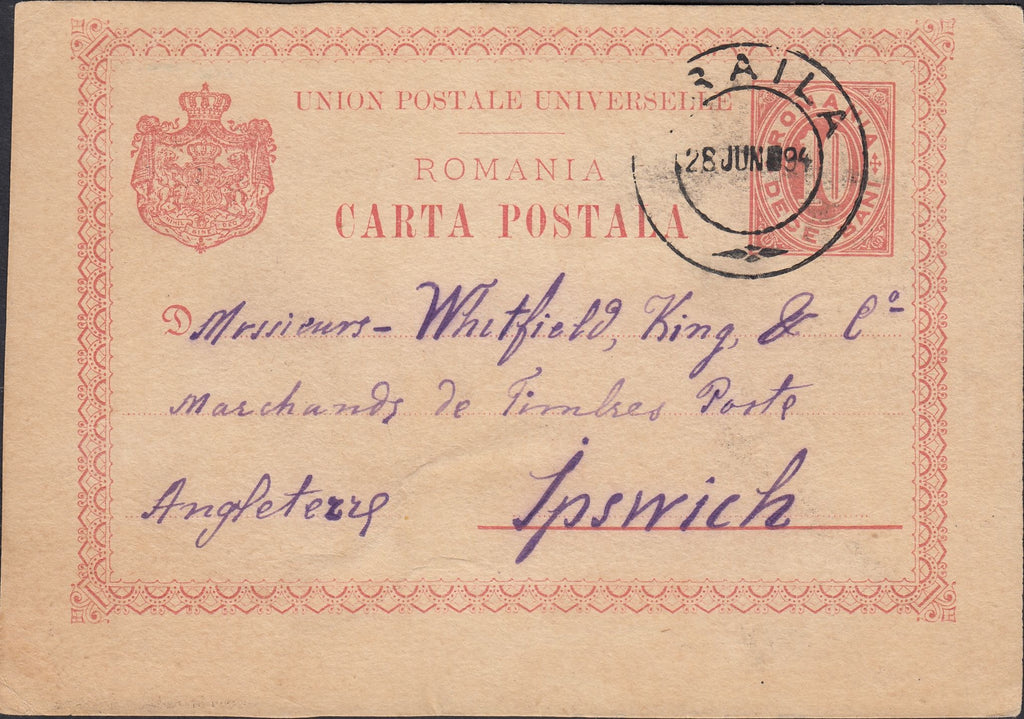 UNION POSTALE UNIVERSELLE
ROMANIA
CARTA POSTALA
RAILA
28 JUN 94
10
DECE BANI
D Messieurs - Whitfield, King, & Cº
Marchands de Timbres Poste
Angleterre
Ipswich